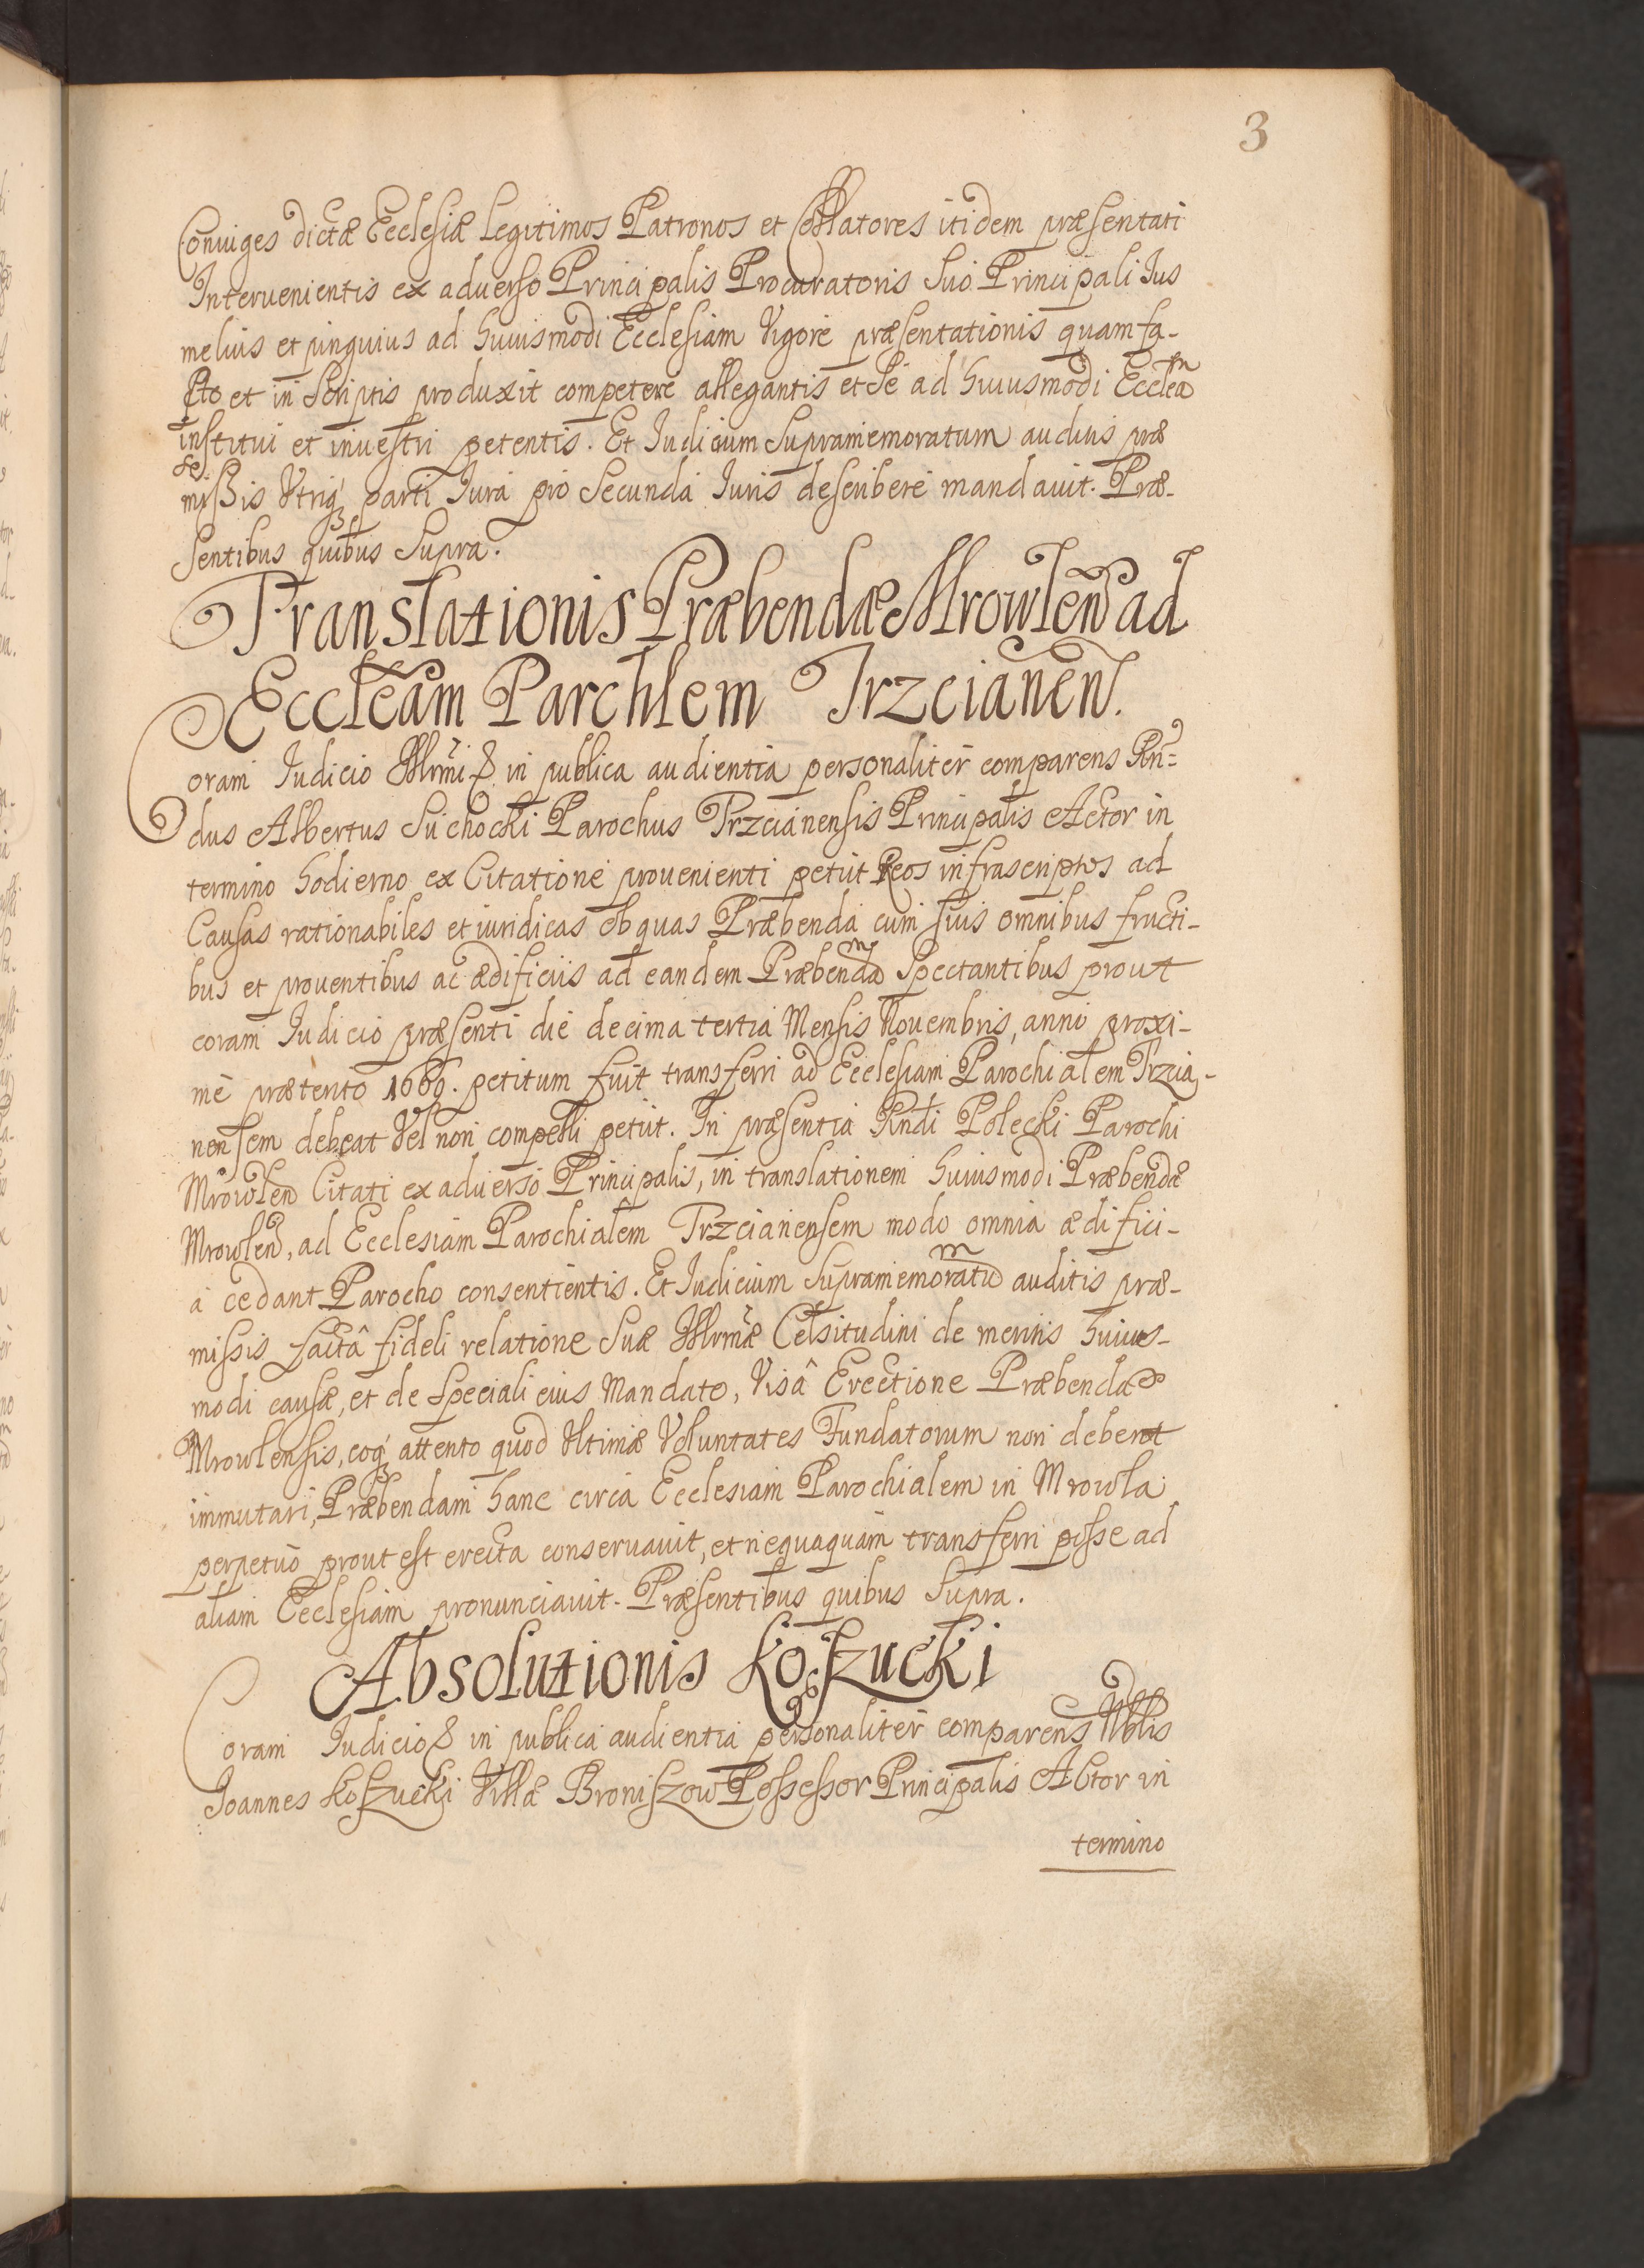 3
Coniuges dictæ Ecclesiæ Legitimos Patronos et Collatores itidem præsentati
Interuenientis ex aduerso Principalis Procuratoris Suo Principali Ius
melius et pinguius ad huiusmodi Ecclesiam Vigore præsentationis quam fa-
cto et in Scriptis produxit competere allegantis et Se ad huiusmodi Eccleã
institui et inuestiri petentis. Et Iudicium Supramemoratum auditis præ
missis Utriq; parti Iura pro Secunda Iuris describere mandauit. Præ-
sentibus quibus Supra.
Translationis Præbendæ Mrowlen ad
Eccleam Parchlem Trzcianen.
Coram Iudicio Illrmi & in publica audientia personaliter comparens Rn=
dus Albertus Suchocki Parochus Trzcianensis Principalis Actor in
termino hodierno ex Citatione prouenienti petiit Reos infrascriptos ad
Causas rationabiles et iuridicas ob quas Præbenda cum suis omnibus fructi-
bus et prouentibus ac ædificiis ad eandem Præbendam Spectantibus prout
coram Iudicio præsenti die decima tertia Mensis Nouembris, anni proxi-
me prætento 1669. petitum fuit transferri ad Ecclesiam Parochialem Trzcia-
nensem debeat Vel non compelli petiit. In præsentia Rndi Polecki Parochi
Mrowlen Citati ex aduerso Principalis, in translationem huiusmodi Præbendæ
Mrowlen, ad Ecclesiam Parochialem Trzcianensem modo omnia ædifici-
a cedant Parocho consentientis. Et Iudicium Supramemoratũ auditis præ-
missis factâ fideli relatione Suæ Illrmæ Celsitudini de meritis huius-
modi causæ, et de Speciali eius Mandato, Visâ Erectione Præbendæ
Mrowlensis, eoq; attento quod Ultimæ Voluntates Fundatorum non debent
immutari, Præbendam hanc circa Ecclesiam Parochialem in Mrowla
perpetuo prout est erecta conseruauit, et nequaquam transferri posse ad
aliam Ecclesiam pronunciauit. Præsentibus quibus Supra.
Absolutionis Koszucki
Coram Iudicio & in publica audientia personaliter comparens Nblis
Joannes Koszucki Villæ Broniszow Possessor Principalis Actor in
termino